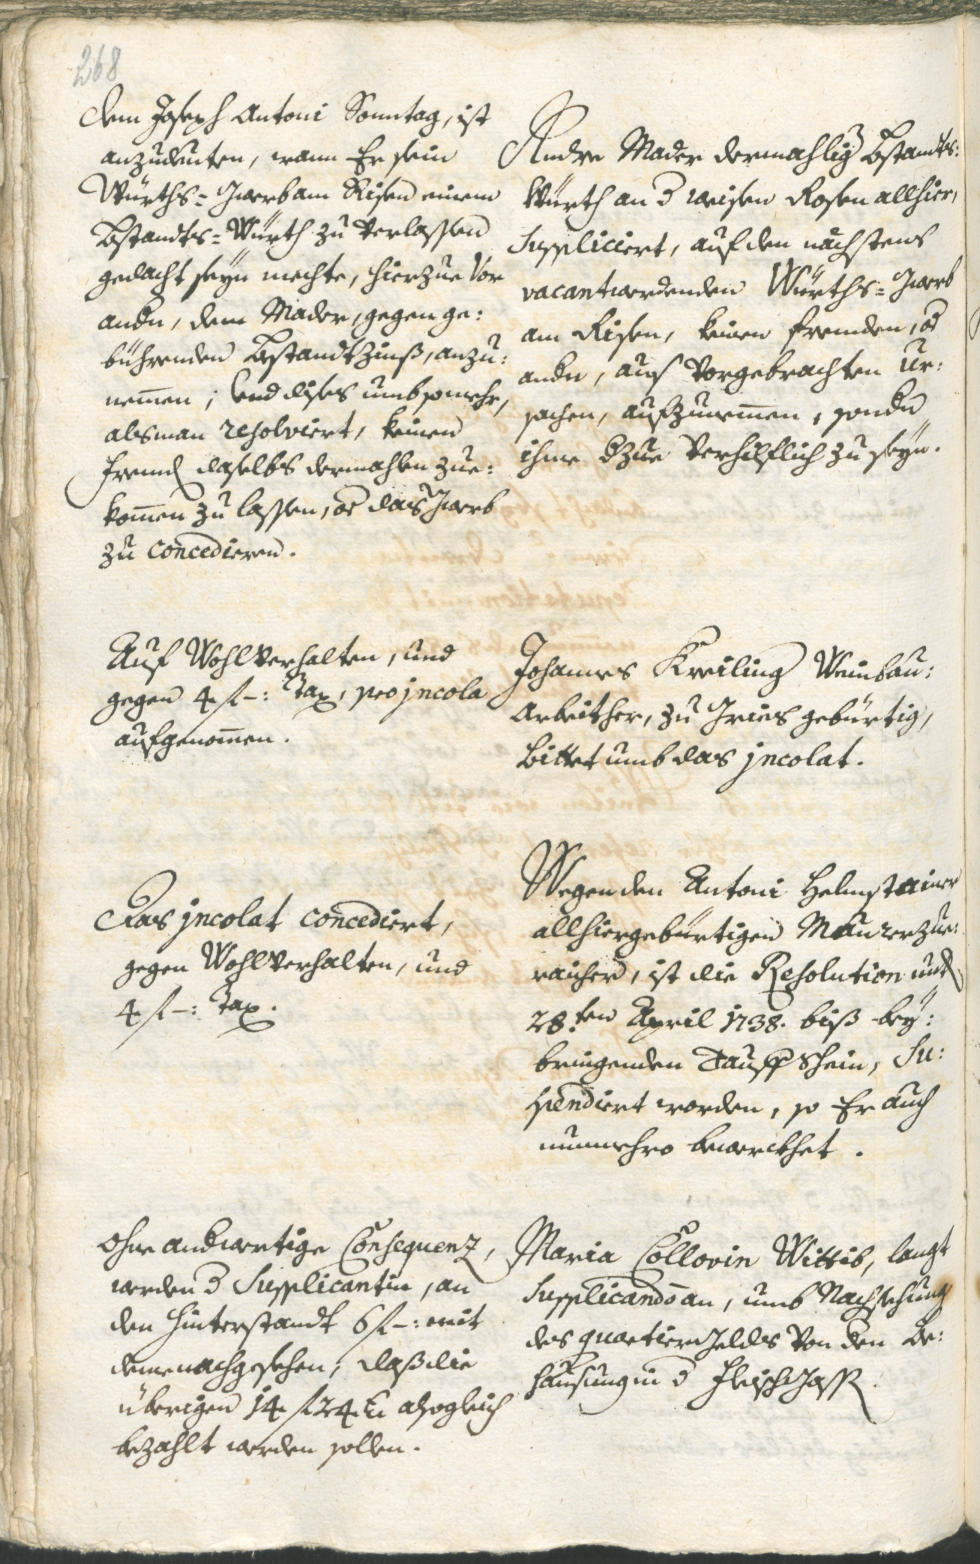 268
Dem Joseph Antoni Sonntag, ist
anzudeuten, wann Er sein
Würths=Gwerb am Risen einem
Bstandts=Würth zu verlassen
gedacht seyn mechte, hierzue vor
andn, dem Mader, gegen ge:
bührenden Bstandtzinß, anzu:
nem̄en; Und dises umb somehr,
als man resolviert, keinen
frembd daselbs dermahlen zue:
kom̄en zu lassen, od das Gwerb
zu concedieren.
Andre Mader dermahlig Bstandts:
Würth an d weisen Rosen allhier,
suppliciert, auf den nächstens
vacant werdenden Würths=Gwerb
am Risen, keinen fremden, od
andn, aus vorgebrachten Ur:
sachen, aufzunem̄en, sondn
ihme dzue verhilflich zu seyn.
Auf Wohlverhalten, und
gegen 4 f –: Tax, pro jncola
aufgenom̄en.
Johannes Kreiling Weinbau:
Arbeither, zu Gries gebürtig,
bittet umb das jncolat.
Das jncolat concediert,
gegen Wohlverhalten, und
4 f –: Tax.
Wegen den Antoni Helmstainer
allhier gebürtigen Maurer zue:
raicher, ist die Resolution undt
28.ten April 1738. biß bey:
bringenden Tauff Schein, su:
spendiert worden, so Er auch
nunmehro bewerckhet.
Ohne andwertige Consequenz,
werden d Supplicantin, an
den Hinterstandt 6 f –: mit
deme nachgesehen, daß die
übrigen 14 f 24 kr alsogleich
bezahlt werden sollen.
Maria Collovin Wittib, langt
supplicando an, umb Nachsehung
des quartier Gelds von den Be:
hausung in d Fleisch Gass.